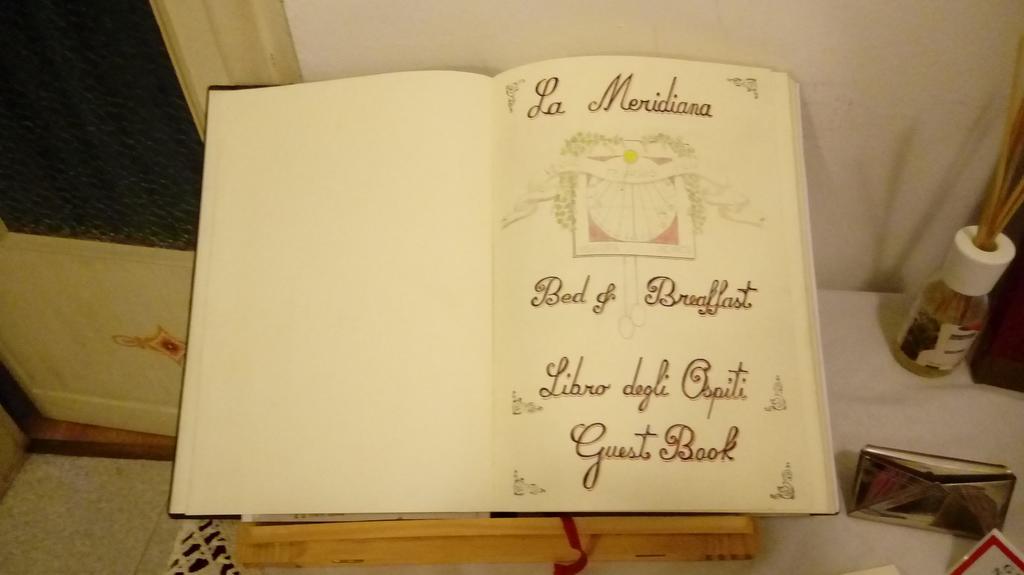 La Meridiana
Bed & Breaffast
Libro degli Ospiti
Guest Book